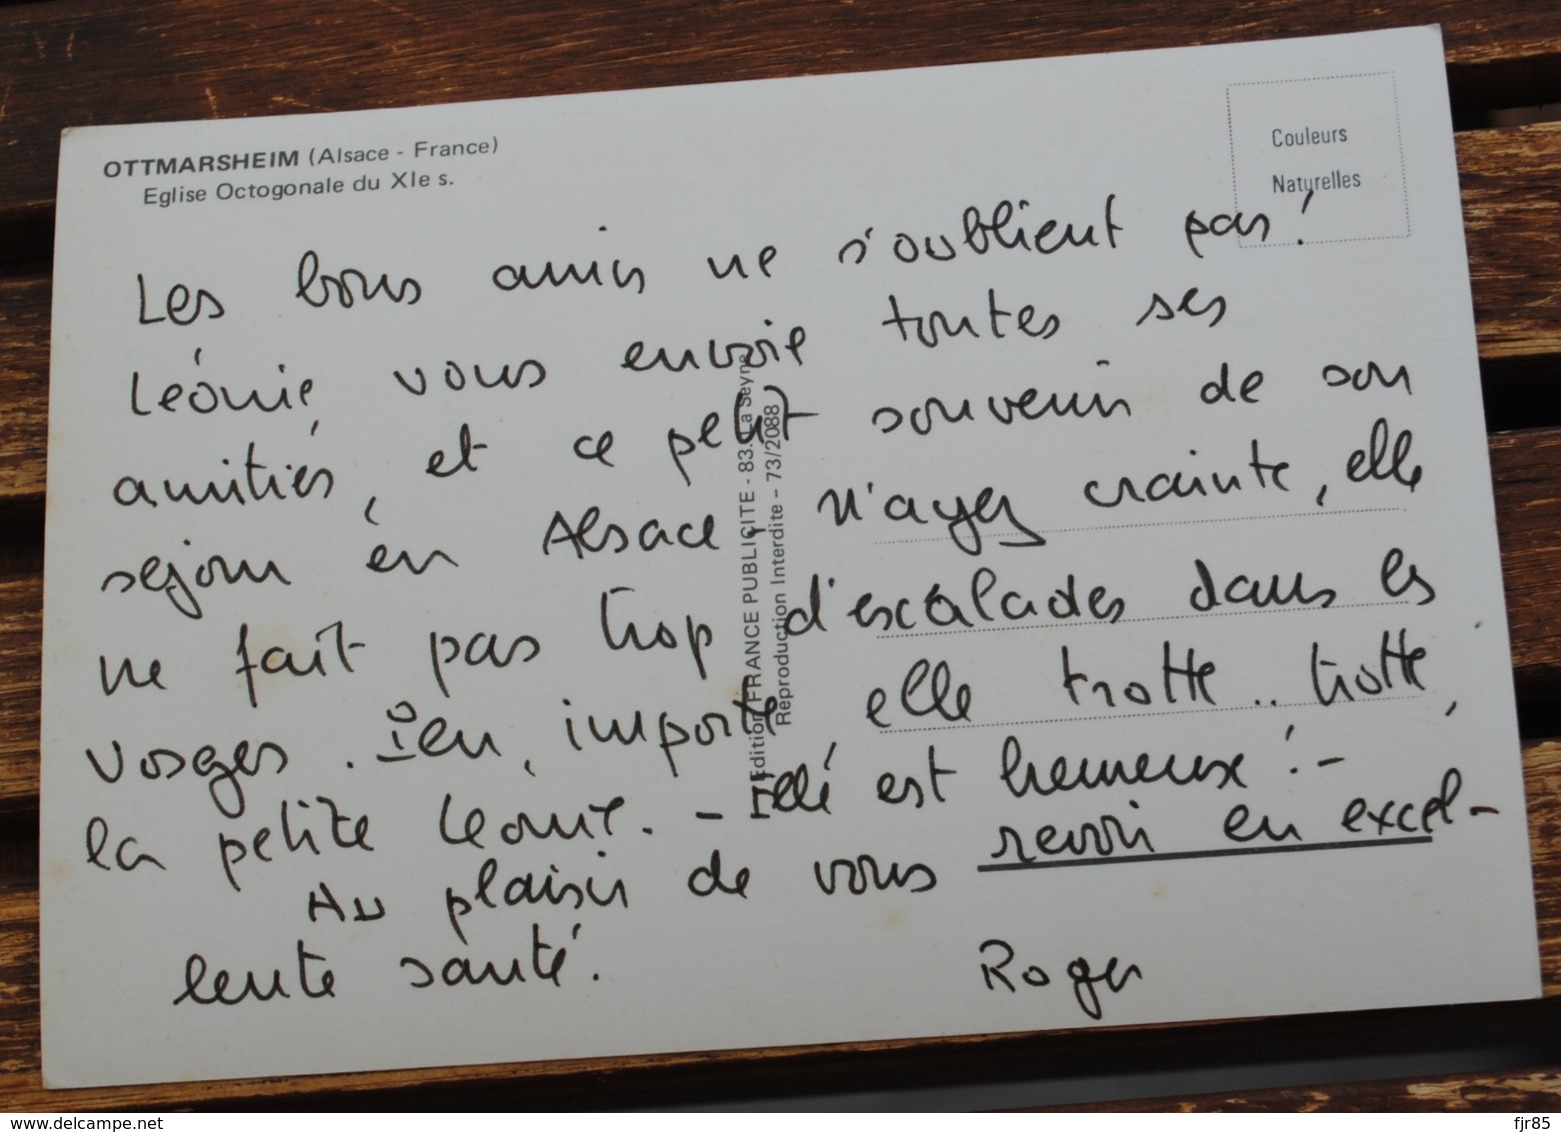 OTTMARSHEIM (Alsace - France)
Eglise Octogonale du XIe s.
Couleurs
Naturelles
Les bons amis ne s'oublient pas !
Léonie vous envoie toutes ses
amitiés, et ce petit souvenir de son
sejour en Alsace. N'ayez crainte, elle
ne fait pas trop d'escalades dans les
Vosges. importe, elle trotte.. trotte,
la petite Leonie. - est heureux ! -
Au plaisir de vous revoir en excel-
lente santé.
Roger
Edition FRANCE PUBLICITE - 83. La Seyne
Reproduction Interdite - 73/2088
www.delcampe.net
fjr85